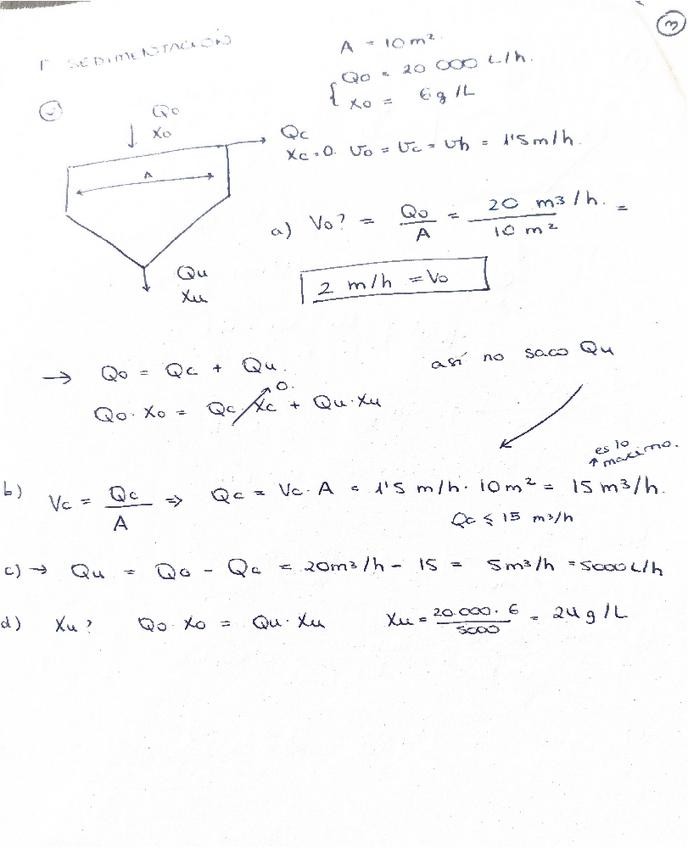 3
T SEDIMENTACIÓN
A = 10 m².
Q₀ = 20 000 L/h.
X₀ = 6 g/L
Q₀
X₀
Qc
Xc = 0. v₀ = vc = vh = 1'5 m/h.
A
a) V₀? = Q₀/A = 20 m³/h. / 10 m² =
2 m/h = V₀
Qu
Xu
→ Q₀ = Qc + Qu.
así no saco Qu
Q₀ · X₀ = Qc Xc + Qu · Xu
0.
es lo
máximo.
b) Vc = Qc/A ⇒ Qc = Vc · A = 1'5 m/h · 10 m² = 15 m³/h.
Qc ≤ 15 m³/h
c) → Qu = Q₀ - Qc = 20 m³/h - 15 = 5 m³/h = 5000 L/h
d) Xu? Q₀ · X₀ = Qu · Xu Xu = 20.000 · 6 / 5000 = 24 g/L